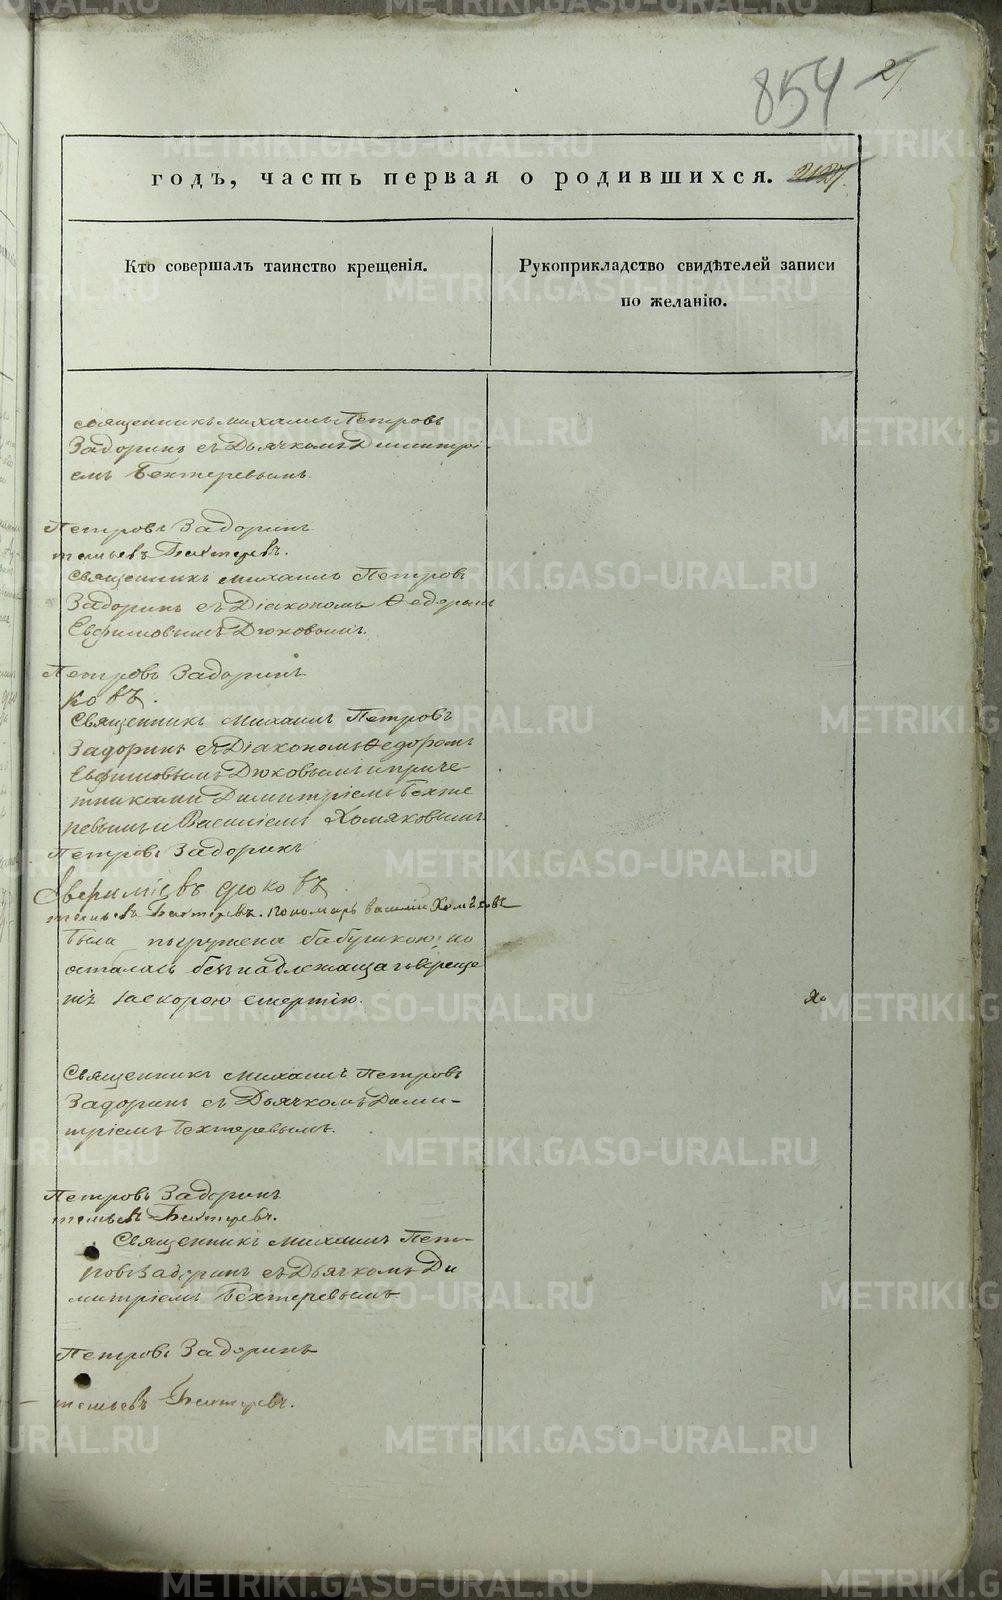 854
27
годъ, часть первая о родившихся.
Кто совершалъ таинство крещенія.
Рукоприкладство свидѣтелей записи
по желанію.
священникъ михаилъ Петровъ
Задоринъ съ Дьячкомъ Димитрі-
емъ Бехтеревымъ.
Петровъ Задоринъ
тельевъ Бехтеревъ.
священникъ михаилъ Петровъ
Задоринъ съ Діакономъ Ѳедоромъ
Евфимовымъ Дюковымъ.
Петровъ Задоринъ
ковъ.
Священникъ михаилъ Петровъ
Задоринъ съ Діакономъ Ѳедоромъ
Евфимовымъ Дюковымъ и приче
тниками Димитріемъ Бехте
ревымъ и Василіемъ Хомяковымъ
Петровъ Задоринъ
Дюковъ
тельевъ Бехтеревъ. пономарь василій Хомяковъ
была погружена бабушкою; но
осталась безъ надлежащаго креще
нія за скорою смертію.
Священникъ михаилъ Петровъ
Задоринъ съ Дьячкомъ Дими-
тріемъ Бехтеревымъ.
Петровъ Задоринъ
тельевъ Бехтеревъ.
Священникъ михаилъ Пет-
ровъ Задоринъ съ Дьячкомъ Ди
митріемъ Бехтеревымъ
Петровъ Задоринъ
тельевъ Бехтеревъ.
METRIKI.GASO-URAL.RU